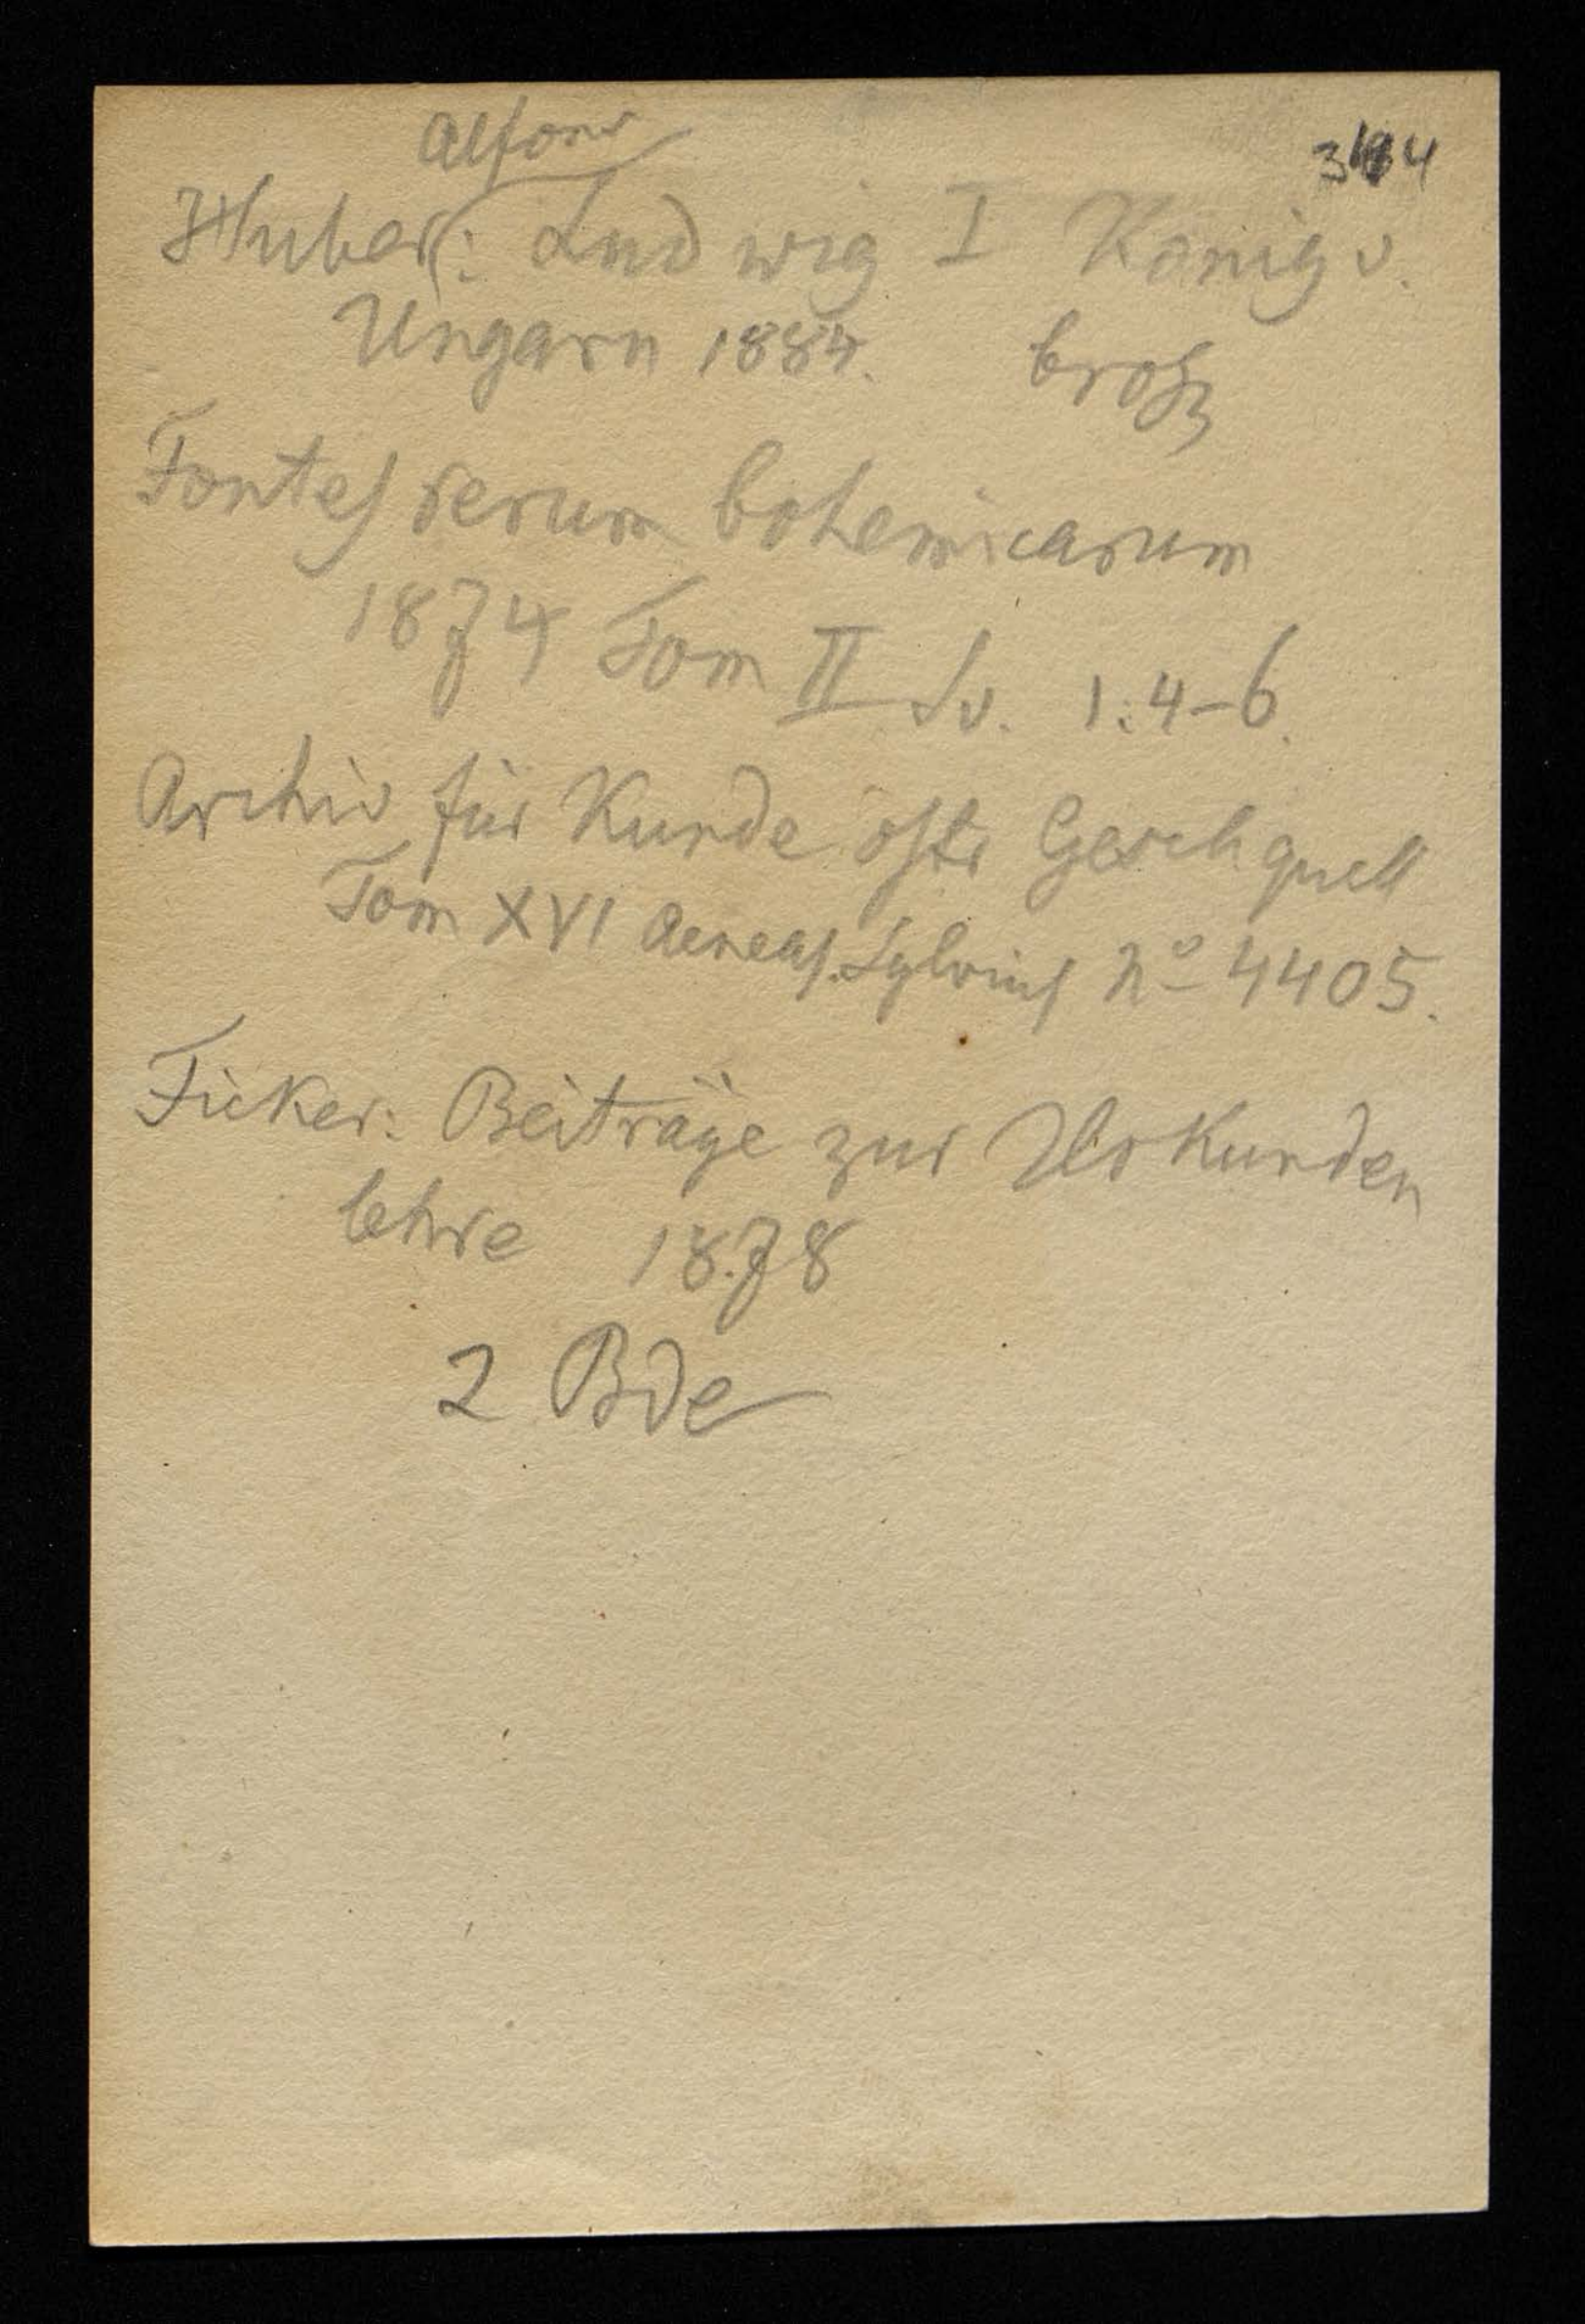 Alfons
Huber: Ludwig I König v.
Ungarn 1884. brosch
Fontes rerum bohemicarum
1874 Tom II Sv. 1. 4-6.
Archiv für Kunde östr Geschquell
Tom XVI Aeneas Sylvius No 4405.
Ficker: Beiträge zur Urkunden
lehre 1878
2 Bde